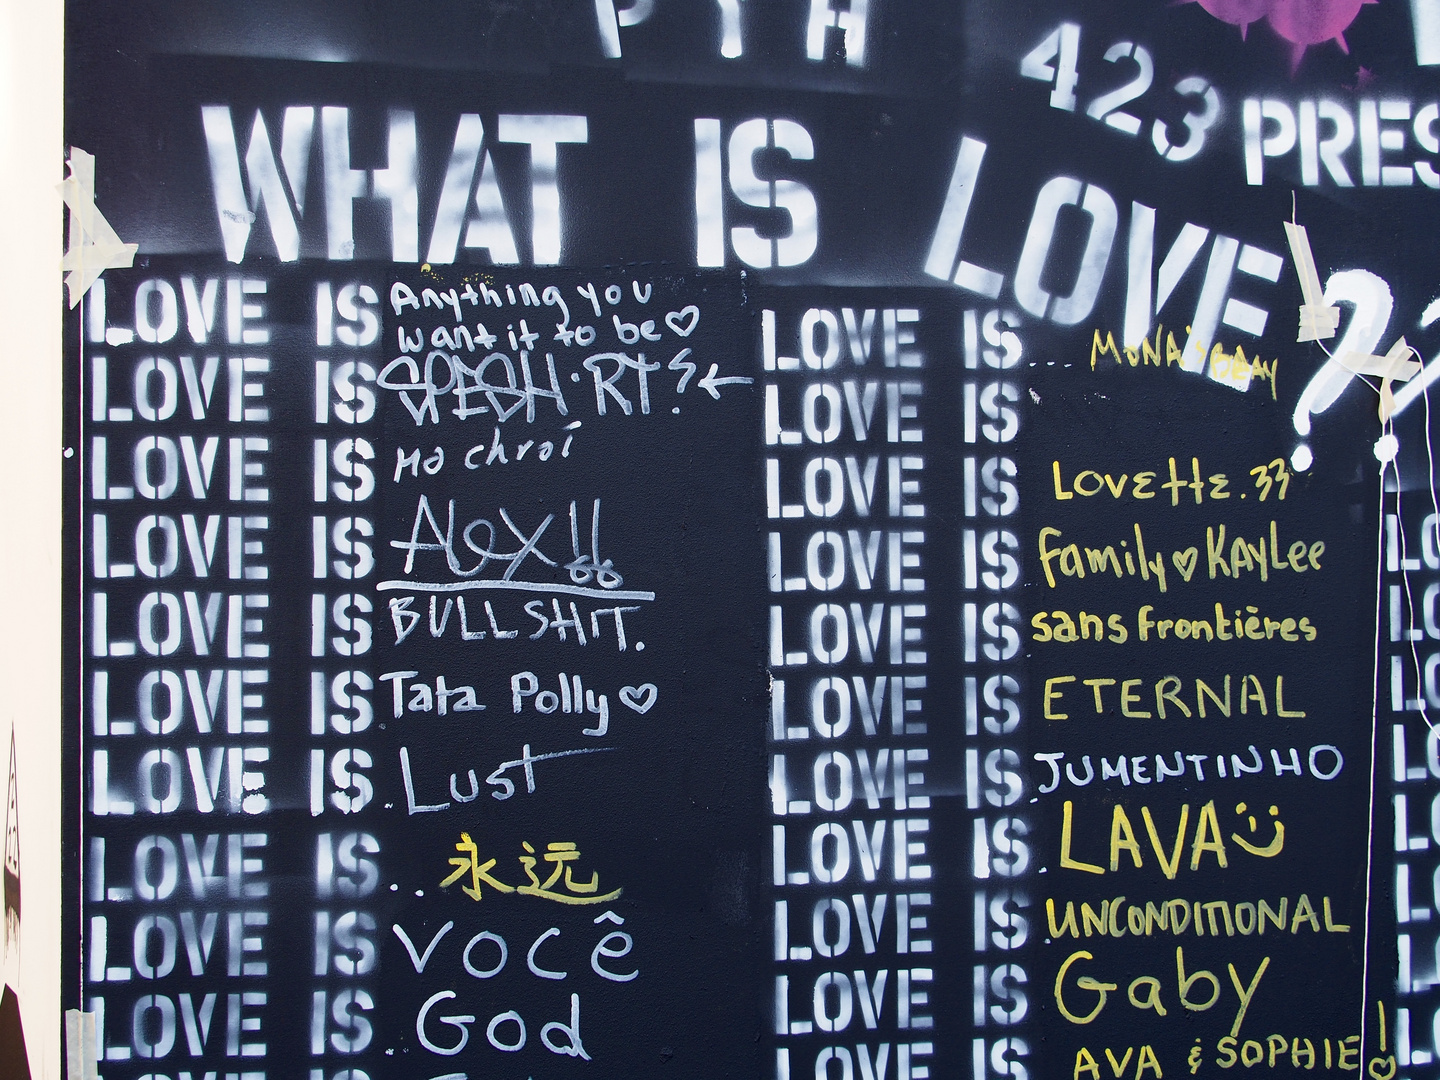 PYA
423 PRES
WHAT IS LOVE??
LOVE IS Anything you
want it to be♡
LOVE IS
LOVE IS Mo chroí
LOVE IS Alex!!
LOVE IS BULLSHIT.
LOVE IS Tata Polly♡
LOVE IS. Lust
LOVE IS.. 永远
LOVE IS você
LOVE IS. God
LOVE IS... MONA
LOVE IS
LOVE IS LOVEttE.33
LOVE IS family♡KAYLee
LOVE IS sans frontières
LOVE IS ETERNAL
LOVE IS. JUMENTINHO
LOVE IS. LAVA
LOVE IS. UNCONDITIONAL
LOVE IS Gaby
LOVE IS AVA & SOPHIE!